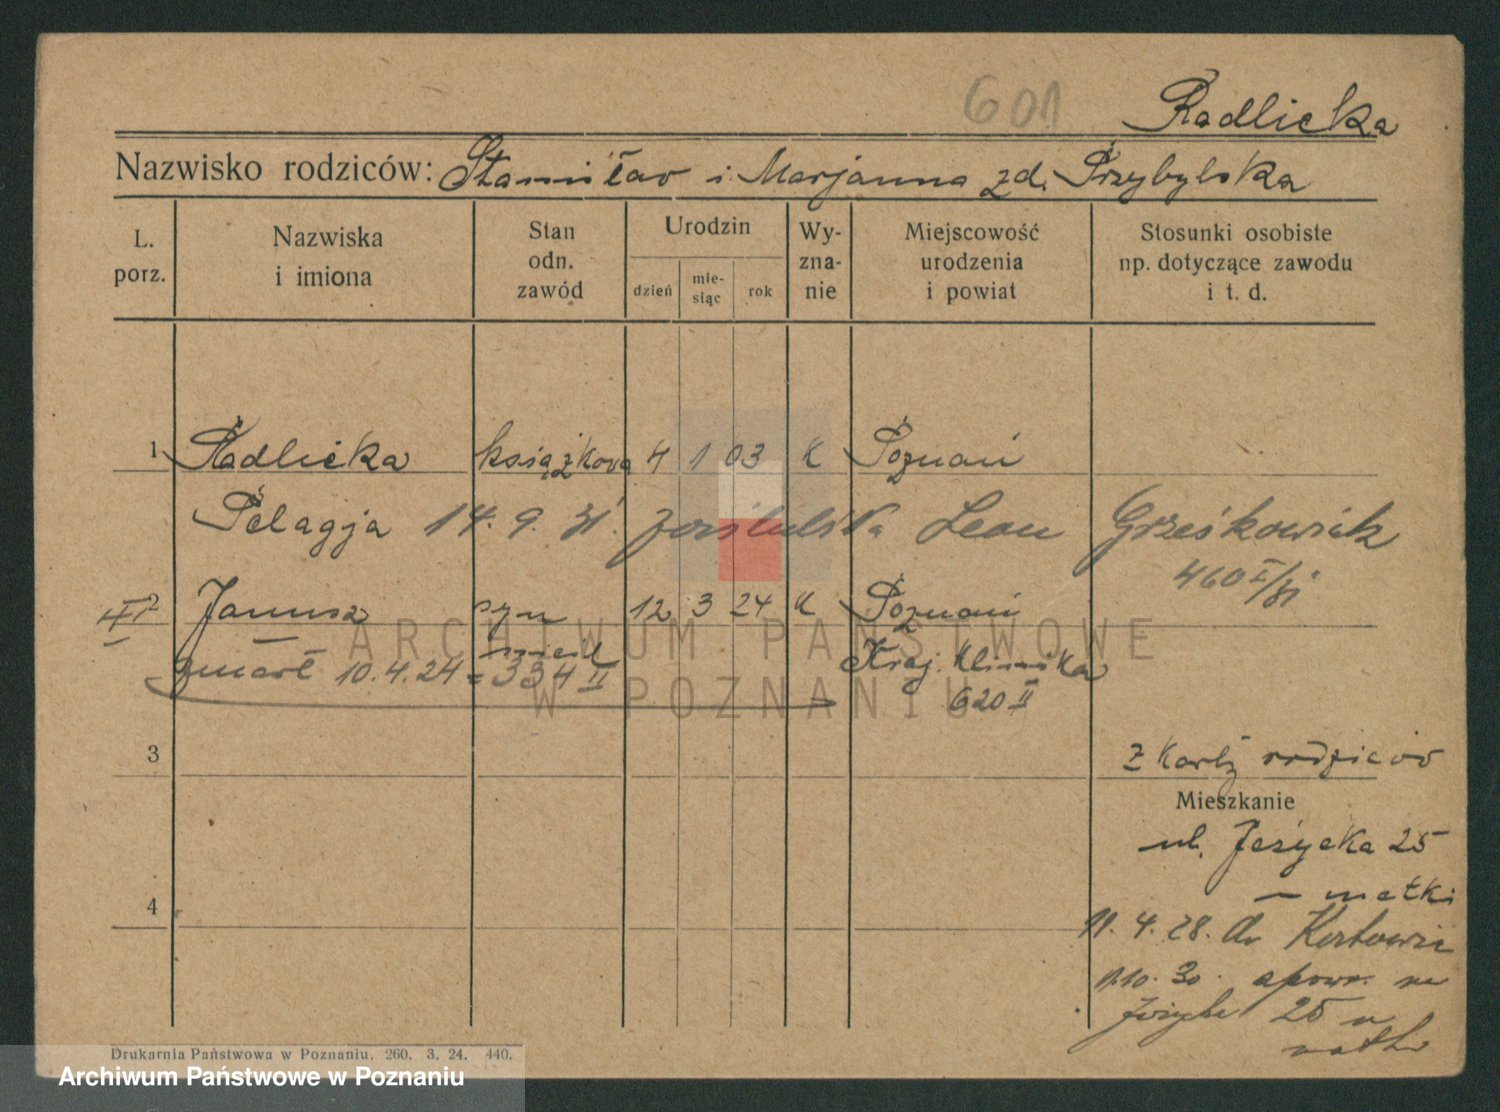 601
Radlicka
Nazwisko rodziców: Stanisław i Marjanna zd. Przybylska
L. porz.
Nazwiska i imiona
Stan odn. zawód
Urodzin
dzień
mie-
siąc
rok
Wy-
zna-
nie
Miejscowość urodzenia i powiat
Stosunki osobiste np. dotyczące zawodu i t. d.
1 Radlicka książkowa 4 1 03 K Poznań
Pelagja 14. 9. 31. Leon Grześkowiak
460 I/31
II 2 Janusz syn 12 3 24 K Poznań
Kraj. Klinika
zmarł 10.4.24 = 334 II
620 II
3
z karty rodziców
Mieszkanie
ul. Jeżycka 25
- matki
4
11. 4. 28. do Katowic
1.10.30. 
25 u
matki
ARCHIWUM PAŃSTWOWE
W POZNANIU
Drukarnia Państwowa w Poznaniu. 260. 3. 24. 440.
Archiwum Państwowe w Poznaniu